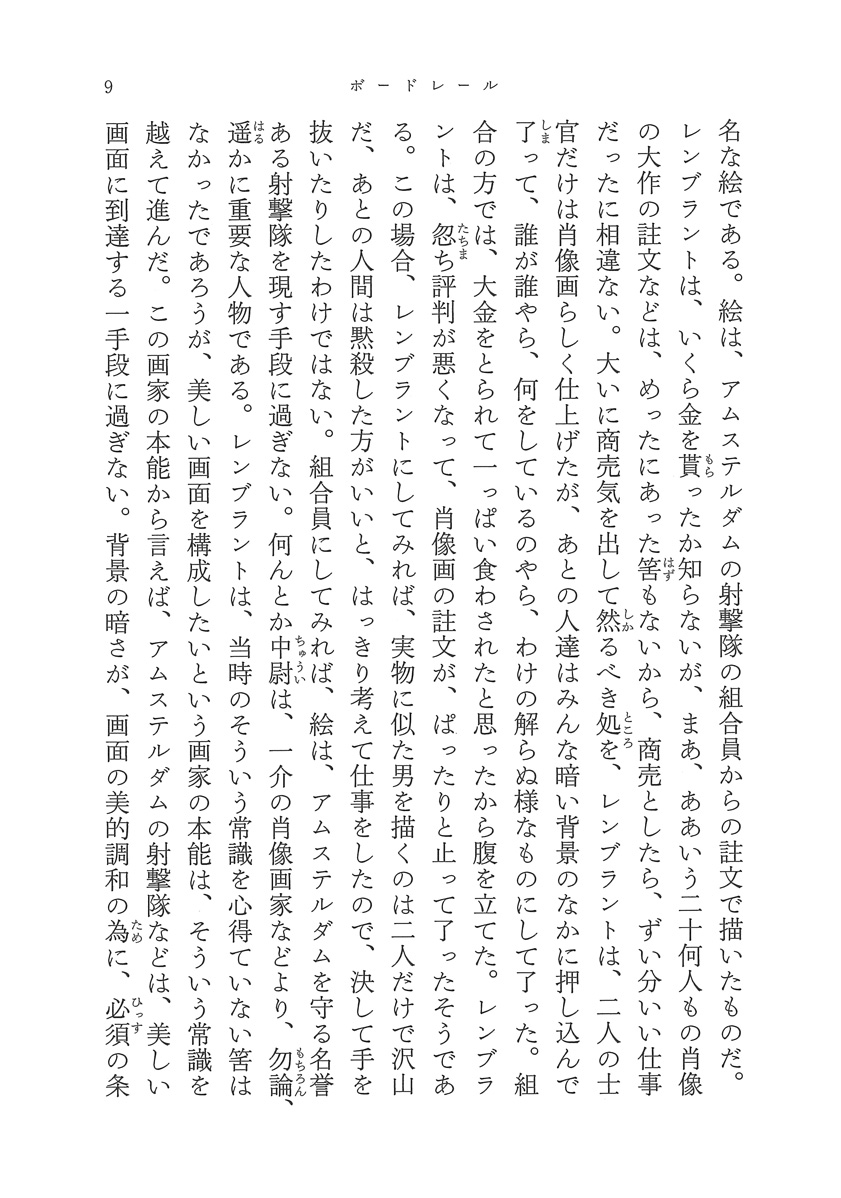 9
ボードレール
名な絵である。絵は、アムステルダムの射撃隊の組合員からの註文で描いたものだ。
レンブラントは、いくら金を貰ったか知らないが、まあ、ああいう二十何人もの肖像
の大作の註文などは、めったにあった筈もないから、商売としたら、ずい分いい仕事
だったに相違ない。大いに商売気を出して然るべき処を、レンブラントは、二人の士
官だけは肖像画らしく仕上げたが、あとの人達はみんな暗い背景のなかに押し込んで
了って、誰が誰やら、何をしているのやら、わけの解らぬ様なものにして了った。組
合の方では、大金をとられて一っぱい食わされたと思ったから腹を立てた。レンブラ
ントは、忽ち評判が悪くなって、肖像画の註文が、ぱったりと止って了ったそうであ
る。この場合、レンブラントにしてみれば、実物に似た男を描くのは二人だけで沢山
だ、あとの人間は黙殺した方がいいと、はっきり考えて仕事をしたので、決して手を
抜いたりしたわけではない。組合員にしてみれば、絵は、アムステルダムを守る名誉
ある射撃隊を現す手段に過ぎない。何んとか中尉は、一介の肖像画家などより、勿論、
遥かに重要な人物である。レンブラントは、当時のそういう常識を心得ていない筈は
なかったであろうが、美しい画面を構成したいという画家の本能は、そういう常識を
越えて進んだ。この画家の本能から言えば、アムステルダムの射撃隊などは、美しい
画面に到達する一手段に過ぎない。背景の暗さが、画面の美的調和の為に、必須の条